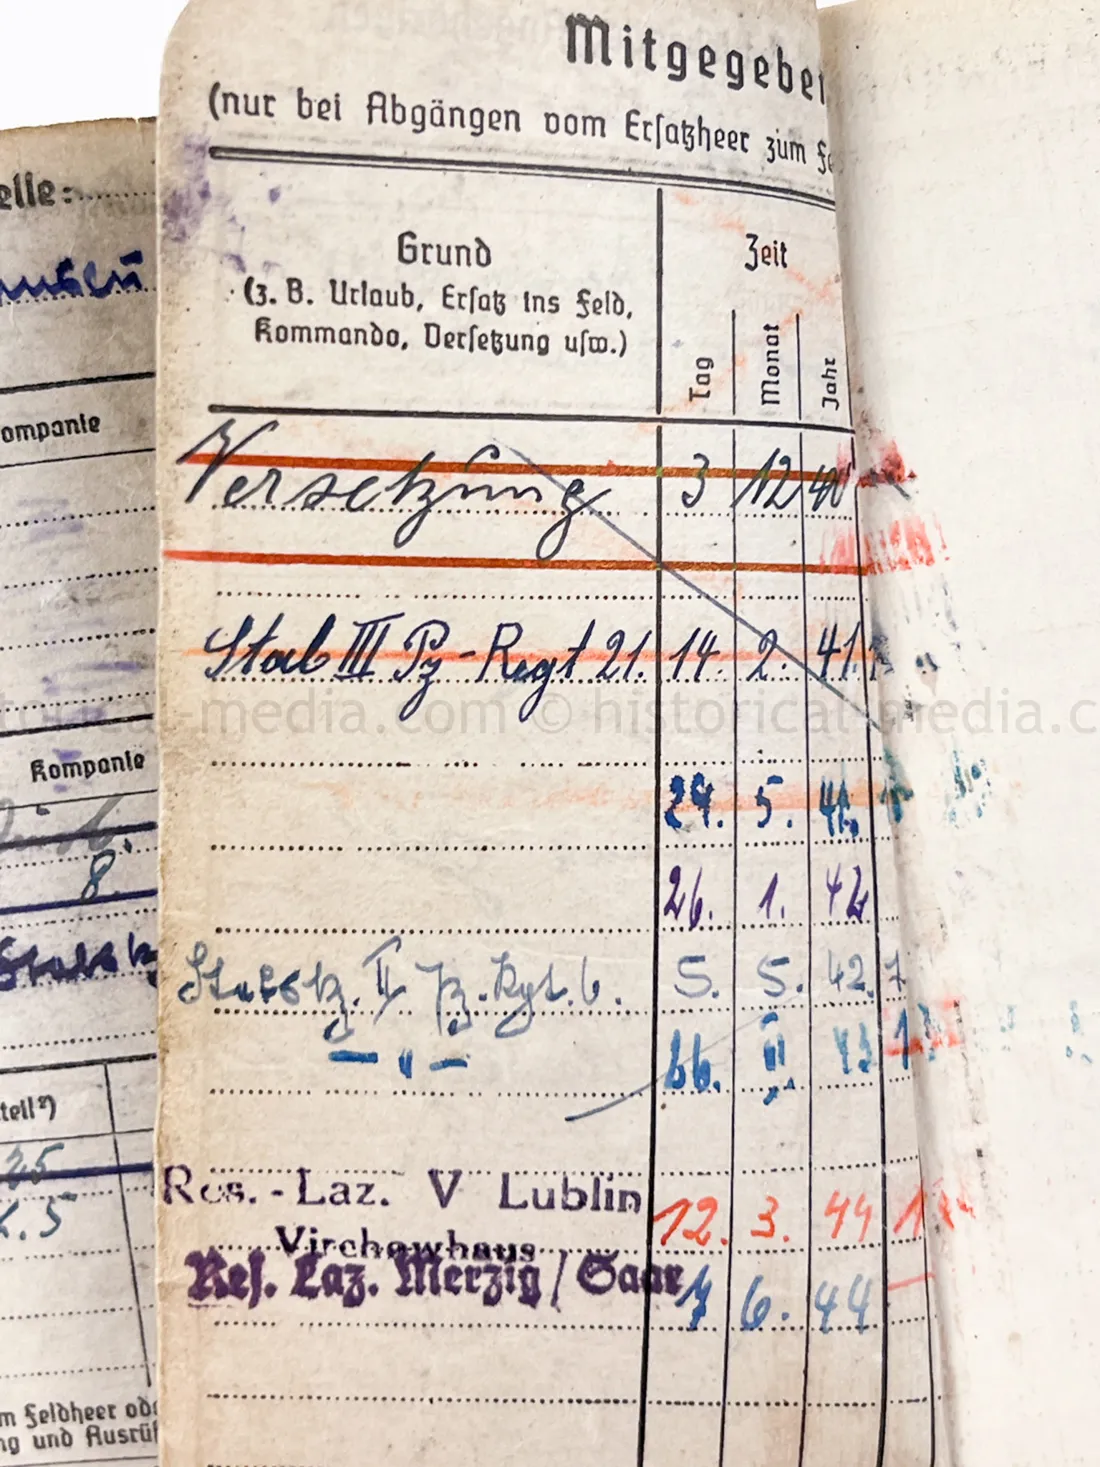 Mitgegeben
(nur bei Abgängen vom Ersatzheer zum Fe
elle:
Grund
(z. B. Urlaub, Ersatz ins Feld,
Kommando, Versetzung usw.)
Zeit
Tag
Monat
Jahr
ompanie
Versetzung 3 12 40
Stab III Pz-Regt 21. 14. 2. 41.
historical-media.com © historical-media.c
Kompanie
29. 5. 41.
8.
26. 1. 42
Stabskp. II Pz. Rgt. 6. 5. 5. 42. 7
- " - 26. II. 43
teil²)
25
Res.-Laz. V Lublin 12. 3. 44 1
Virchowhaus
Res. Laz. Merzig / Saar 7 6. 44
m Feldheer ode
ng und Ausrüs